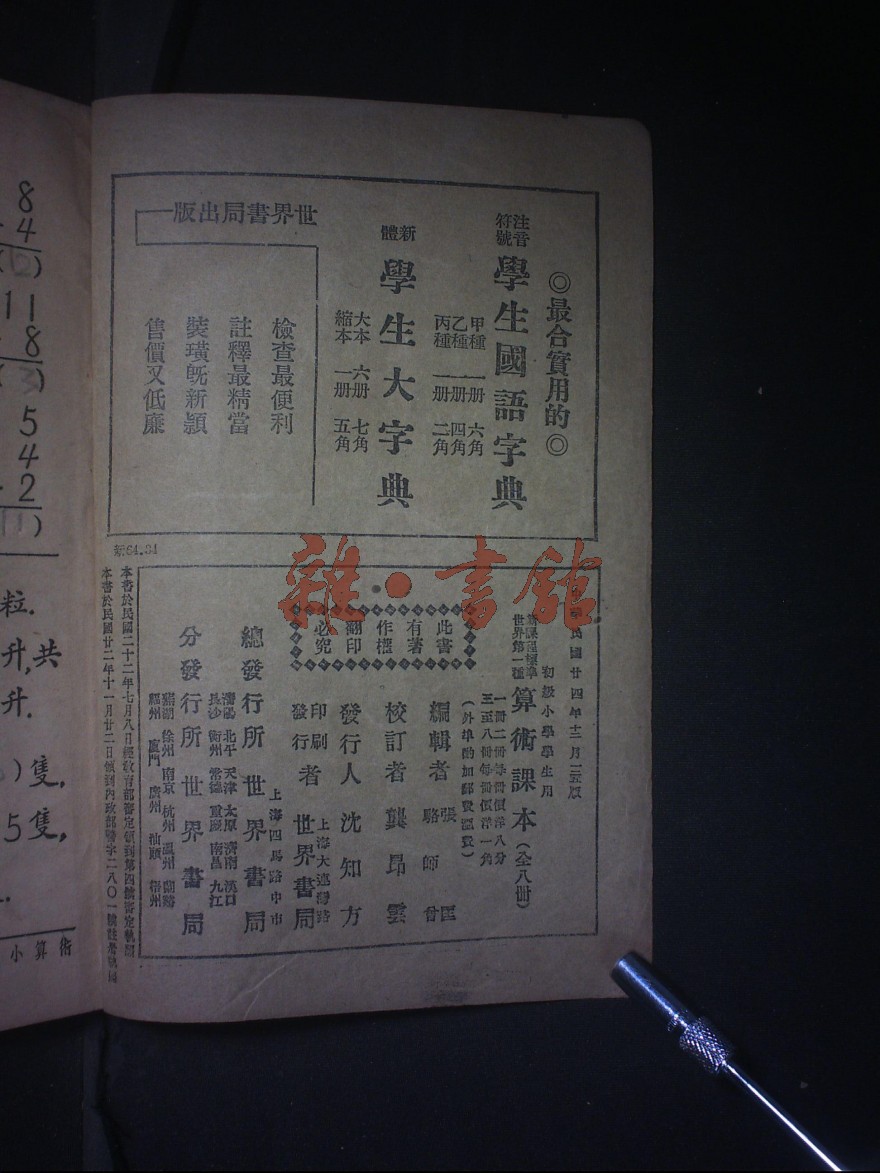 ◎最合實用的◎
注音
符號
學生國語字典
甲種 一册 六角
乙種 一册 四角
丙種 一册 二角
新
體
學生大字典
大本 六册 七角
縮本 一册 五角
世界書局出版
檢查最便利
註釋最精當
裝璜旣新穎
售價又低廉
民國廿四年十二月二五版
新課程標準
世界第一種
初級小學學生用
算術課本(全八冊)
一冊二冊每冊價洋八分
三至八冊每冊價洋一角
(外埠酌加郵費匯費)
編輯者
張匡
駱師曾
校訂者 龔昂雲
發行人 沈知方
印刷
發行
者
上海大連灣路
世界書局
此書
有著
作權
翻印
必究
上海四馬路中市
總發行所 世界書局
瀋陽 北平 天津 太原 濟南 漢口
長沙 衡州 常德 重慶 南昌 九江
分發行所 世界書局
蕪湖 徐州 南京 杭州 溫州 蘭谿
廈門 廣州 汕頭 梧州
本書於民國二十二年七月八日經教育部審定領到第四號審定執照
本書於民國廿二年十一月廿二日領到內政部警字二八〇一號註冊執照
雜·書館
8
4
( )
11
8
( )
5
4
2
( )
粒.
升,共
升.
)隻,
5隻,
小算術